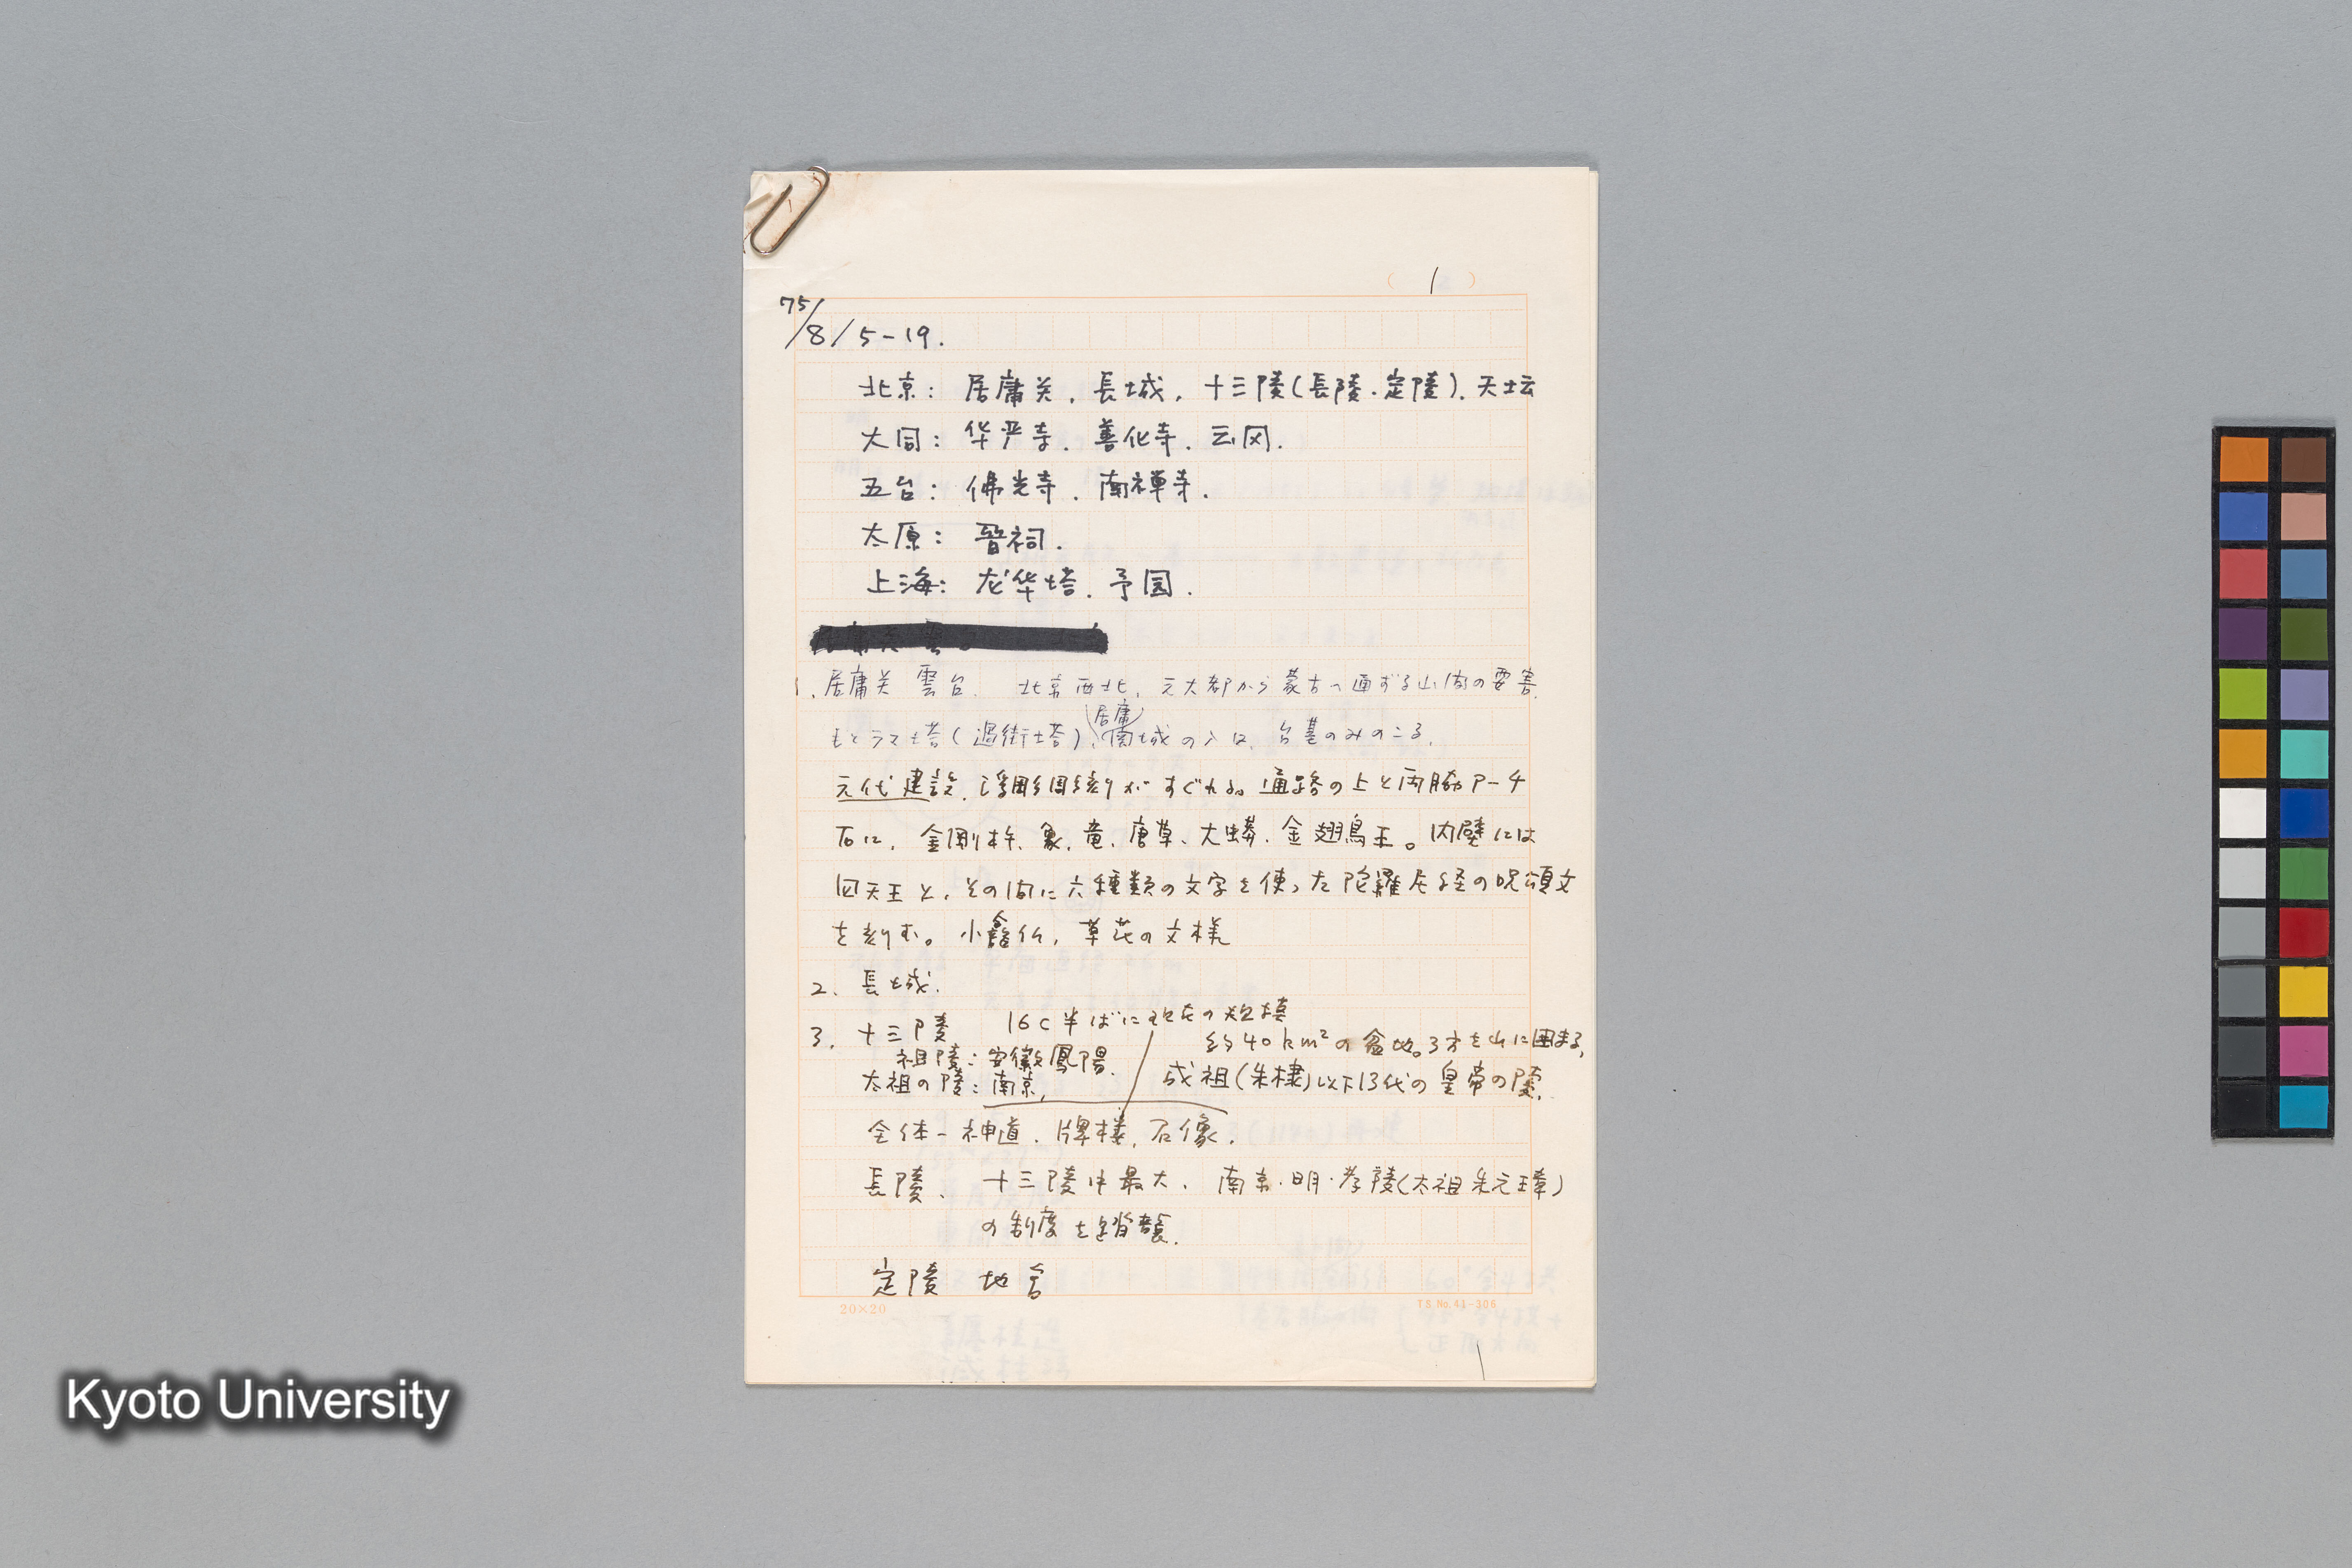 ( 1 )
75/8/5-19.
北京: 居庸关, 長城, 十三陵(長陵・定陵). 天坛
大同: 华严寺. 善化寺. 云冈.
五台: 佛光寺. 南禅寺.
太原: 晋祠.
上海: 龙华塔. 予园.
1. 居庸关 雲台. 北京西北, 元大都から蒙古へ通ずる山間の要害.
もとラマ塔(過街塔), 居庸南城の入口, 台基のみのこる.
元代建設, 浮彫彫刻がすぐれる。通路の上と両脇アーチ
石に, 金剛杵、象、竜、唐草、大蟒、金翅鳥王。内壁には
四天王と, その間に六種類の文字を使った陀羅尼経の呪頌文
を刻む。小龕仏, 草花の文様
2. 長城.
3. 十三陵 16C半ばに現在の規模
約40km²の盆地。3方を山に囲まる,
祖陵: 安徽鳳陽.
太祖の陵: 南京, 成祖(朱棣)以下13代の皇帝の陵.
全体ー神道. 牌楼, 石像.
長陵、十三陵中最大. 南京・明・孝陵(太祖朱元璋)
の制度を踏襲.
定陵 地宮
20×20
TS No. 41-306
Kyoto University